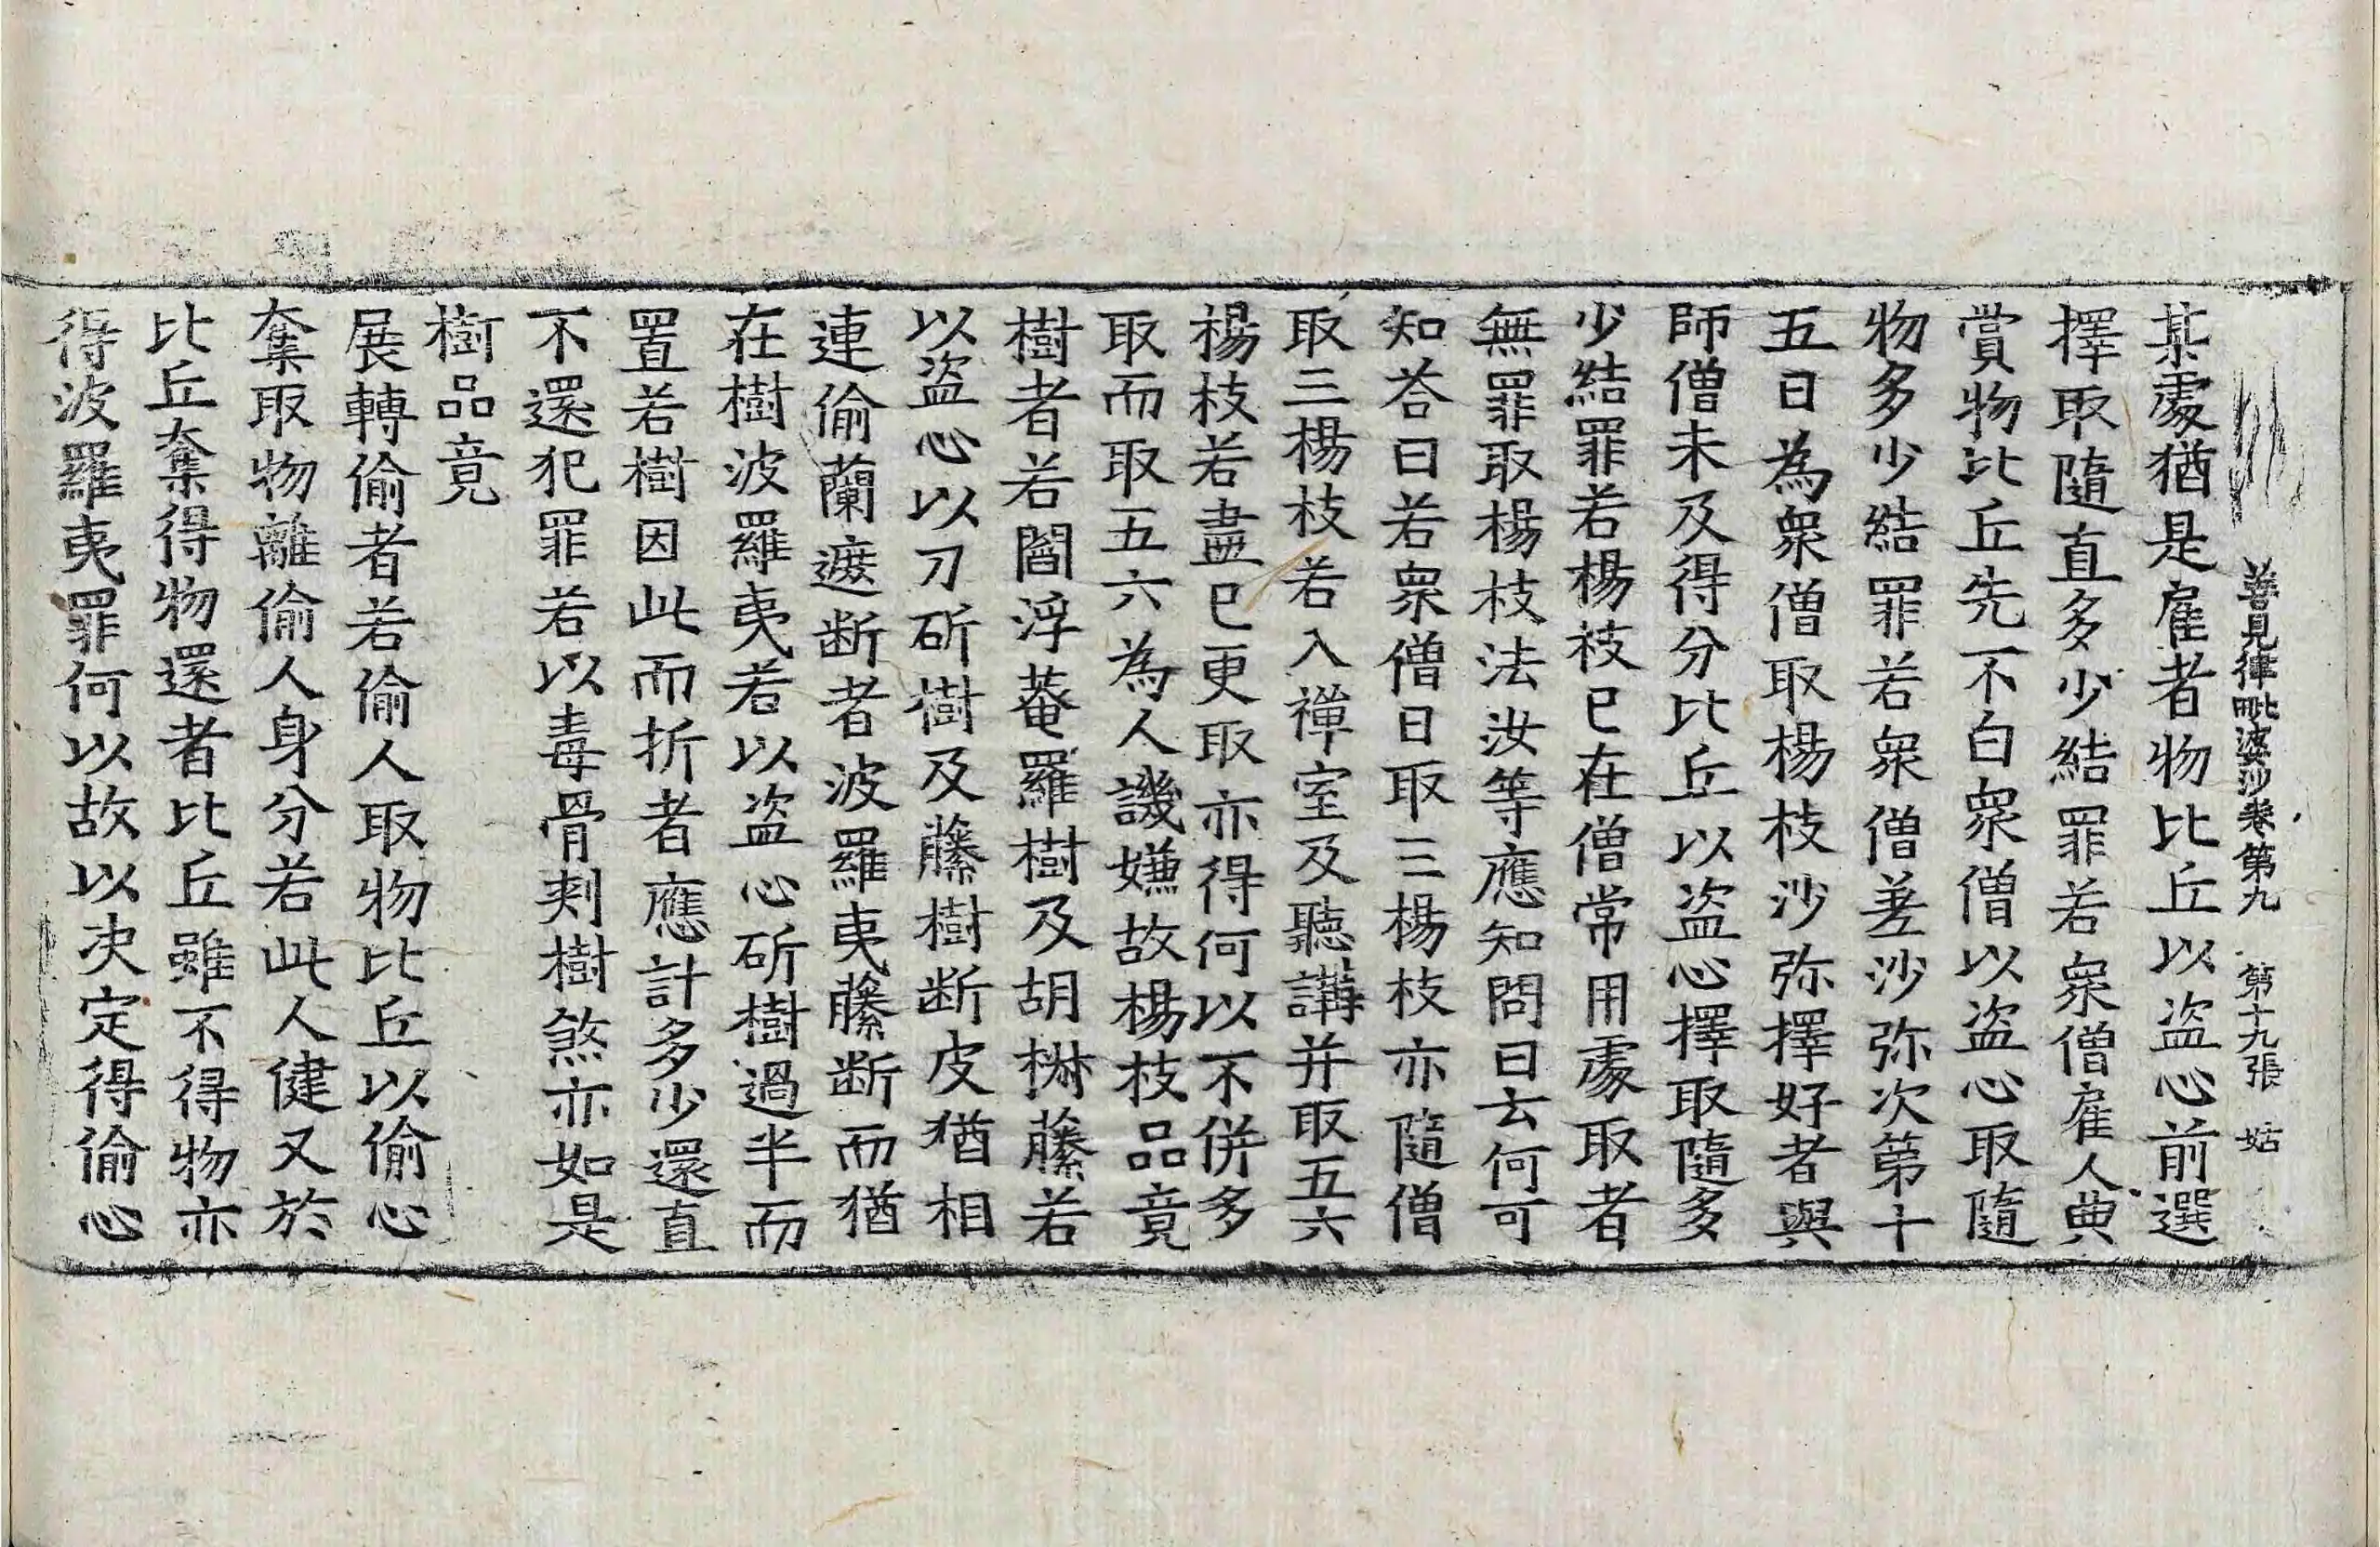 善見律毗婆沙卷第九　第十九張　姑
某處猶是雇者物比丘以盜心前選
擇取隨直多少結罪若衆僧雇人典
賞物比丘先不白衆僧以盜心取隨
物多少結罪若衆僧差沙弥次第十
五日為衆僧取楊枝沙弥擇好者與
師僧未及得分比丘以盜心擇取隨多
少結罪若楊枝已在僧常用處取者
無罪取楊枝法汝等應知問曰云何可
知荅曰若衆僧日取三楊枝亦隨僧
取三楊枝若入禪室及聽講并取五六
楊枝若盡已更取亦得何以不併多
取而取五六為人譏嫌故楊枝品竟
樹者若閻浮菴羅樹及胡椒藤若
以盜心以刀斫樹及藤樹断皮猶相
連偷蘭遮断者波羅夷藤断而猶
在樹波羅夷若以盜心斫樹過半而
置若樹因此而折者應計多少還直
不還犯罪若以毒骨刾樹煞亦如是
樹品竟
展轉偷者若偷人取物比丘以偷心
奪取物離偷人身分若此人健又於
比丘奪得物還者比丘雖不得物亦
得波羅夷罪何以故以决定得偷心